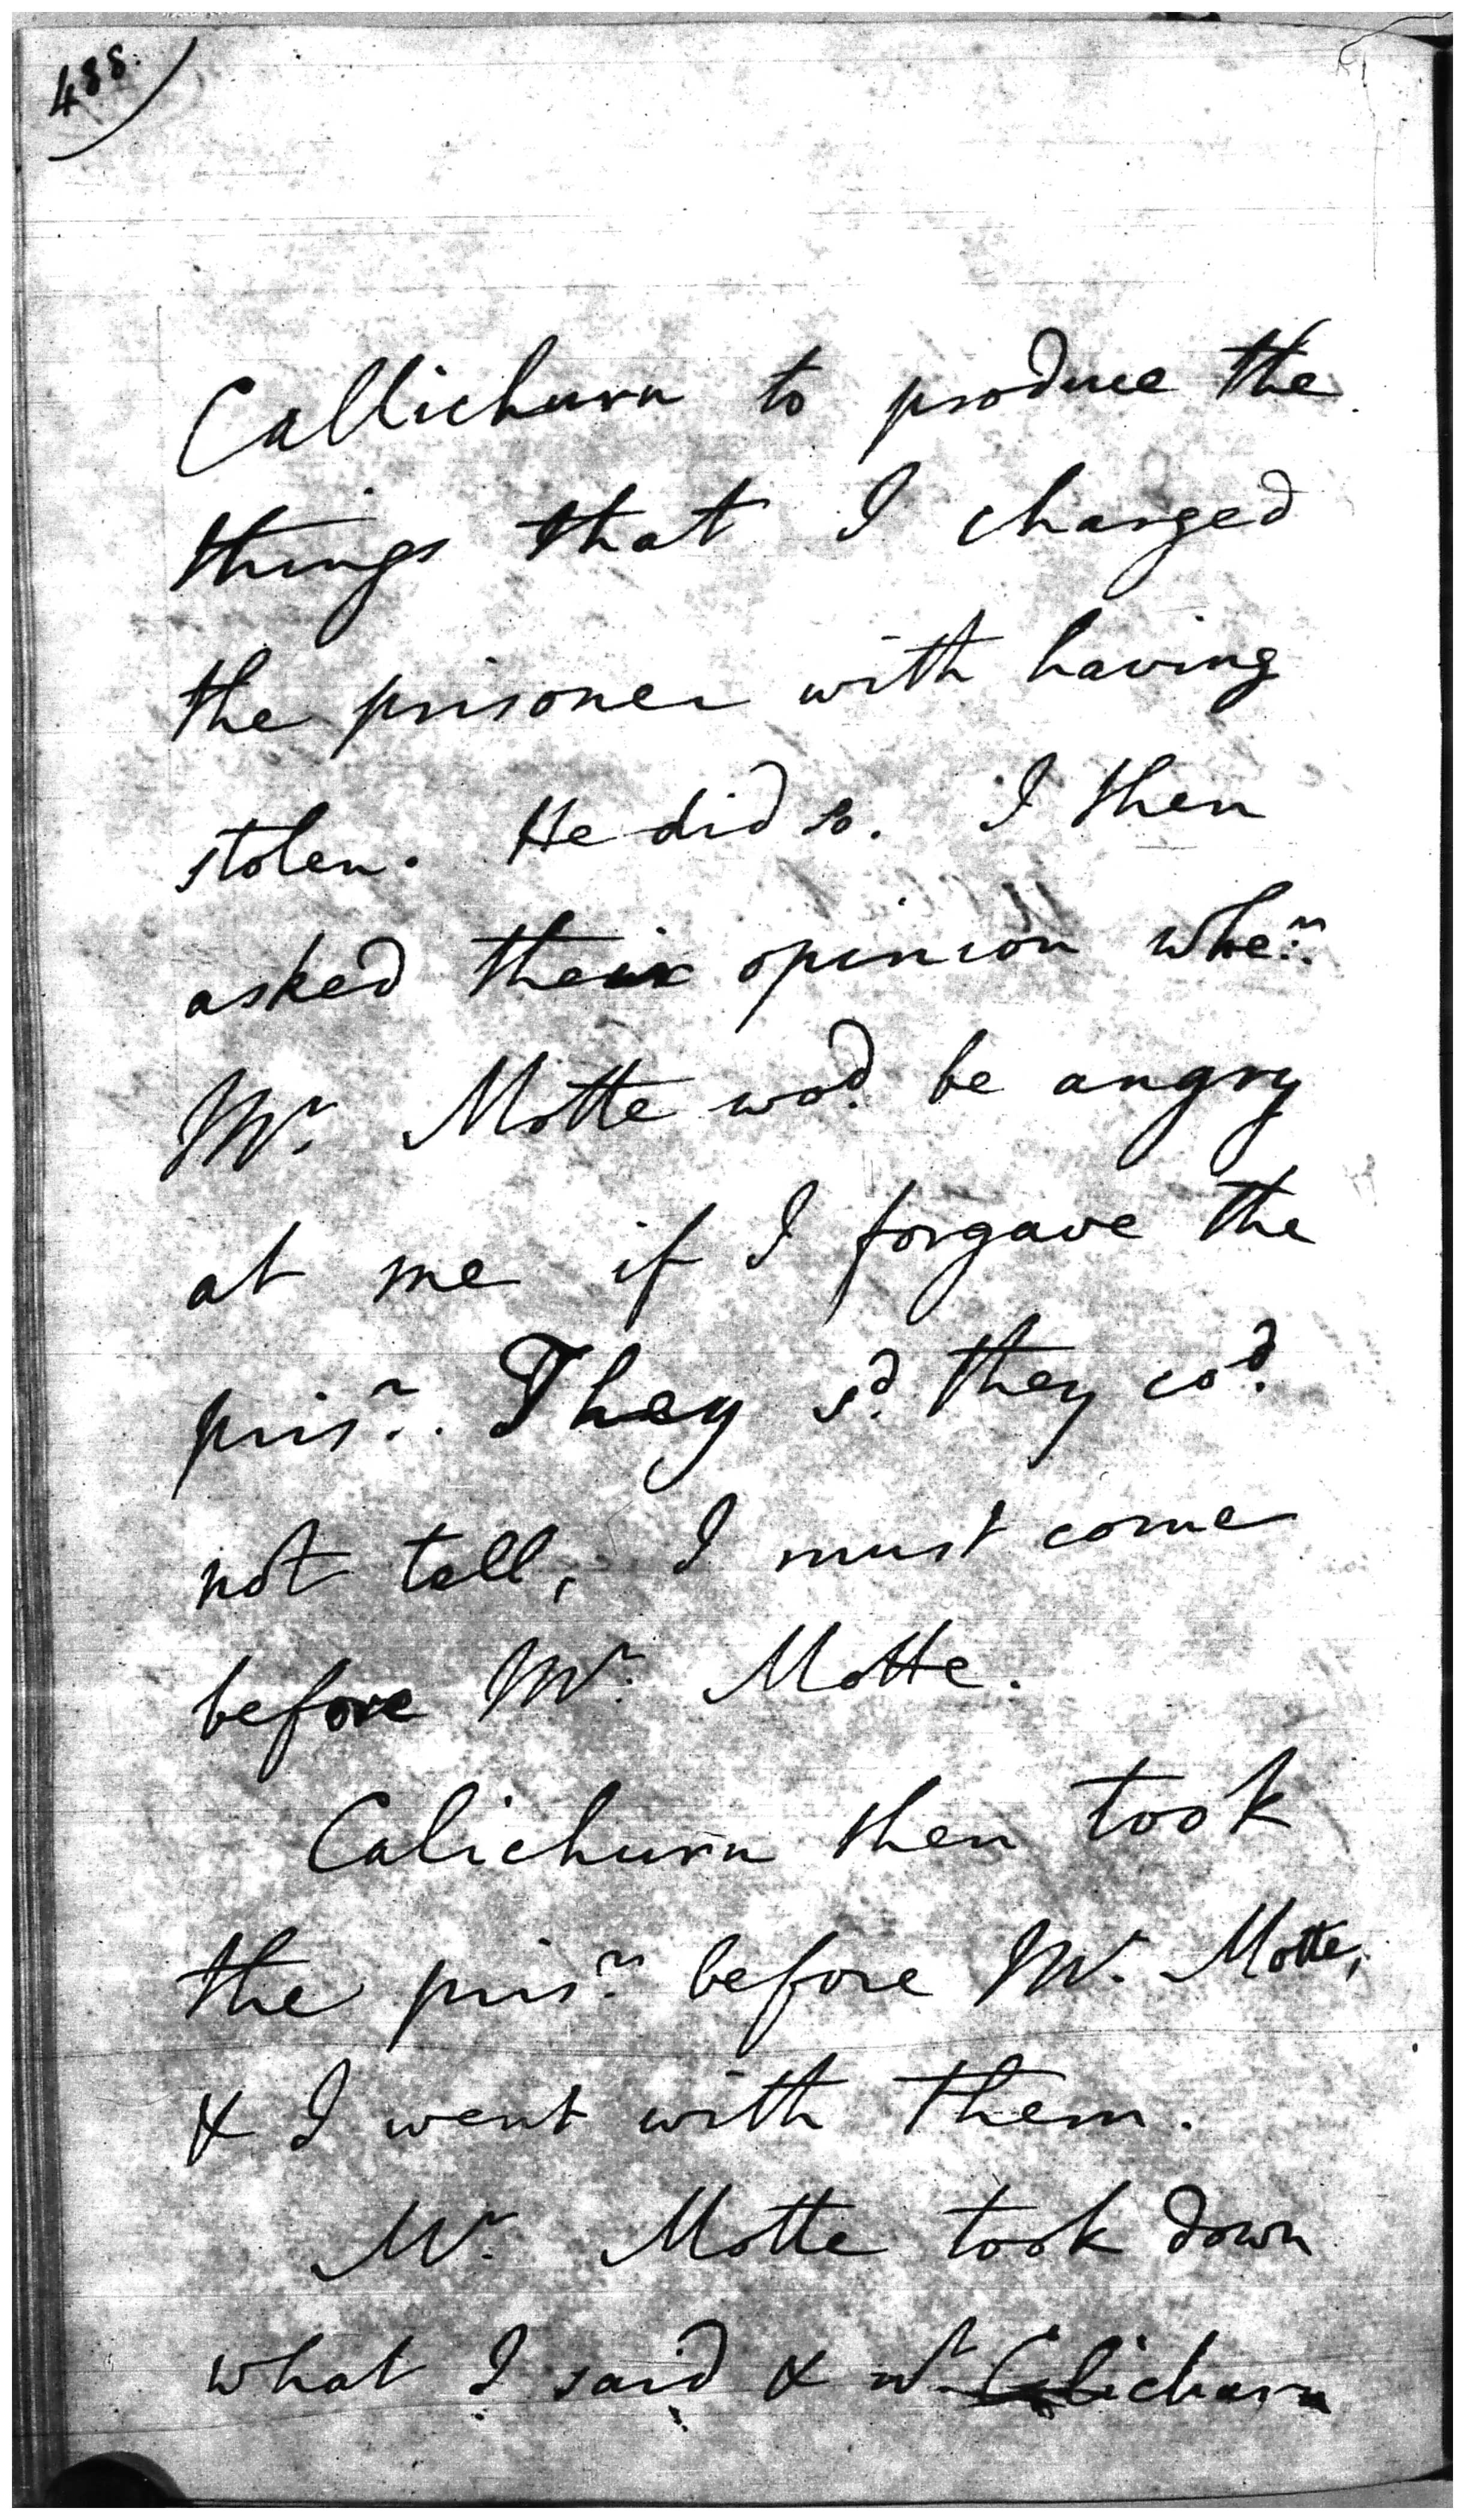 488.
Callichurn to produce the
things that I charged
the prisoner with having
stolen. He did so. I then
asked their opinion whe.r
Mr. Motte wod. be angry
at me if I forgave the
prisr.. They sd. they cod.
not tell, I must come
before Mr. Motte.
Calichurn then took
the prisr. before Mr. Motte,
& I went with them.
Mr. Motte took down
what I said & wt Calichurn